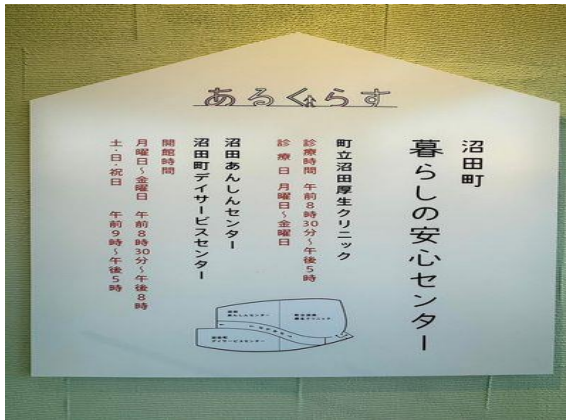 あるくらす
沼田町
暮らしの安心センター
町立沼田厚生クリニック
診療時間 午前8時30分～午後5時
診療日 月曜日～金曜日
沼田あんしんセンター
沼田町デイサービスセンター
開館時間
月曜日～金曜日 午前8時30分～午後8時
土・日・祝日 午前9時～午後5時